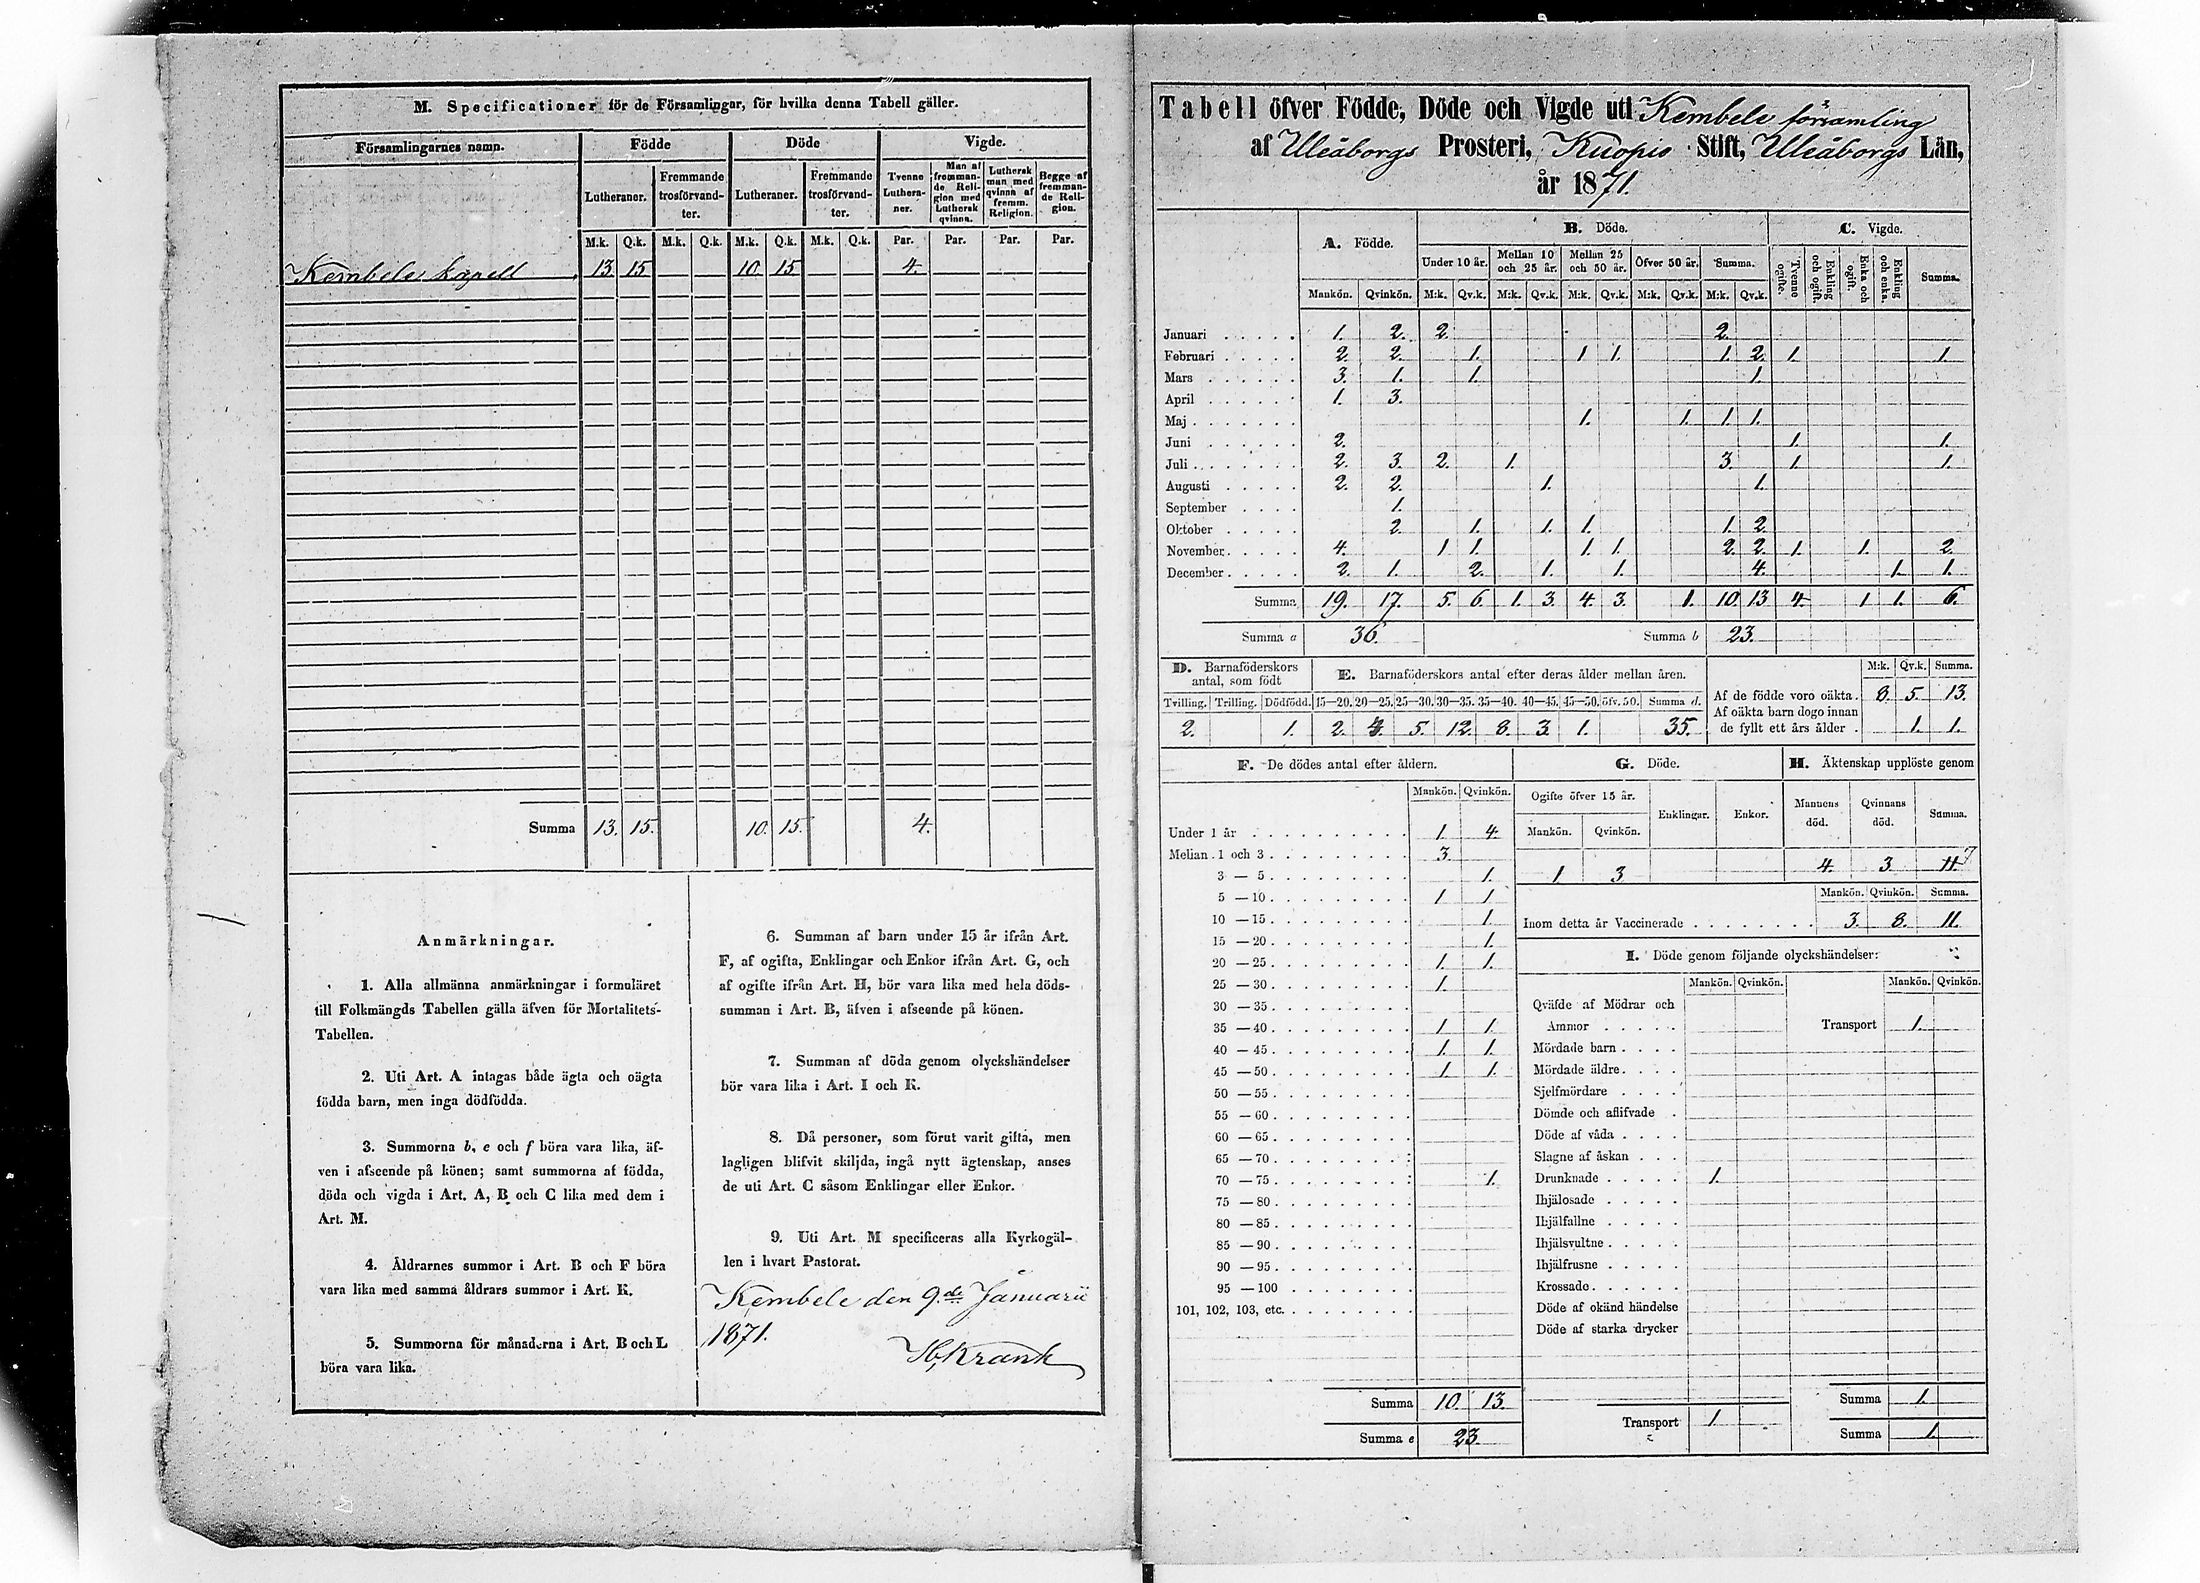 M. Specificationer för de Församlingar, för hvilka denna Tabell gäller.
Församlingarnes namn. Födde Döde Vigde.
Lutheraner. Fremmande trosförvandter. Lutheraner. Fremmande trosförvandter. Tvenne Lutheraner. Man af fremmande Religion med Luthersk qvinna. Luthersk man med qvinna af fremm. Religion. Begge af fremmande Religion.
M.k. Q.k. M.k. Q.k. M.k. Q.k. M.k. Q.k. Par. Par. Par. Par.
Kembele kapell 13 15 10. 15 4.
Summa 13. 15. 10. 15. 4.
Anmärkningar.
1. Alla allmänna anmärkningar i formuläret
till Folkmängds Tabellen gälla äfven för Mortalitets-
Tabellen.
2. Uti Art. A intagas både ägta och oägta
födda barn, men inga dödfödda.
3. Summorna b, e och f böra vara lika, äf-
ven i afseende på könen; samt summorna af födda,
döda och vigda i Art. A, B och C lika med dem i
Art. M.
4. Åldrarnes summor i Art. B och F böra
vara lika med samma åldrars summor i Art. K.
5. Summorna för månaderna i Art. B och L
böra vara lika.
6. Summan af barn under 15 år ifrån Art.
F, af ogifta, Enklingar och Enkor ifrån Art. G, och
af ogifte ifrån Art. H, bör vara lika med hela döds-
summan i Art. B, äfven i afseende på könen.
7. Summan af döda genom olyckshändelser
bör vara lika i Art. I och K.
8. Då personer, som förut varit gifta, men
lagligen blifvit skiljda, ingå nytt ägtenskap, anses
de uti Art. C såsom Enklingar eller Enkor.
9. Uti Art. M specificeras alla Kyrkogäl-
len i hvart Pastorat.
Kembele den 9de Januarii
1871.
Krank
Tabell öfver Födde, Döde och Vigde uti Kembele församling
af Uleåborgs Prosteri, Kuopio Stift, Uleåborgs Län,
år 1871.
A. Födde. B. Döde. C. Vigde.
Under 10 år. Mellan 10 och 25 år. Mellan 25 och 50 år. Öfver 50 år. Summa. Tvenne ogifte. Enkling och ogift. Enka och ogift. Enkling och enka. Summa.
Mankön. Qvinkön. M:k. Qv.k. M:k. Qv.k. M:k. Qv.k. M:k. Qv.k. M:k. Qv.k.
Januari 1. 2. 2. 2.
Februari 2. 2. 1. 1 1. 1. 2. 1. 1.
Mars 3. 1. 1. 1.
April 1. 3.
Maj 1. 1. 1. 1.
Juni 2. 1. 1.
Juli 2. 3. 2. 1. 3. 1. 1.
Augusti 2. 2. 1. 1.
September 1.
Oktober 2. 1. 1. 1. 1. 2.
November 4. 1 1. 1. 1. 2. 2. 1. 1. 2.
December 2. 1. 2. 1. 1. 4. 1. 1.
Summa 19. 17. 5. 6. 1. 3. 4. 3. 1. 10. 13 4. 1 1. 6.
Summa a 36. Summa b 23.
D. Barnaföderskors antal, som födt
Tvilling. Trilling. Dödfödd.
2. 1.
E. Barnaföderskors antal efter deras ålder mellan åren.
15—20. 20—25. 25—30. 30—35. 35—40. 40—45. 45—50. öfv. 50. Summa d.
2. 4. 5. 12. 8. 3. 1. 35.
M:k. Qv.k. Summa.
Af de födde voro oäkta. 8. 5. 13.
Af oäkta barn dogo innan
de fyllt ett års ålder . 1. 1.
F. De dödes antal efter åldern.
Mankön. Qvinkön.
Under 1 år 1. 4.
Mellan 1 och 3 3.
3 — 5 1.
5 — 10 1 1
10 — 15 1.
15 — 20 1.
20 — 25 1. 1.
25 — 30 1.
30 — 35
35 — 40 1 1
40 — 45 1. 1.
45 — 50 1 1.
50 — 55
55 — 60
60 — 65
65 — 70
70 — 75 1.
75 — 80
80 — 85
85 — 90
90 — 95
95 — 100
101, 102, 103, etc.
Summa 10. 13.
Summa e 23.
G. Döde.
Ogifte öfver 15 år. Enklingar. Enkor.
Mankön. Qvinkön.
1 3
H. Äktenskap upplöste genom
Mannens död. Qvinnans död. Summa.
4. 3. 7
Mankön. Qvinkön. Summa.
Inom detta år Vaccinerade 3. 8. 11.
I. Döde genom följande olyckshändelser:
Mankön. Qvinkön. Mankön. Qvinkön.
Qväfde af Mödrar och
Ammor Transport 1.
Mördade barn
Mördade äldre
Sjelfmördare
Dömde och aflifvade
Döde af våda
Slagne af åskan
Drunknade 1.
Ihjälosade
Ihjälfallne
Ihjälsvultne
Ihjälfrusne
Krossade
Döde af okänd händelse
Döde af starka drycker
Transport 1
Summa 1.
Summa 1.